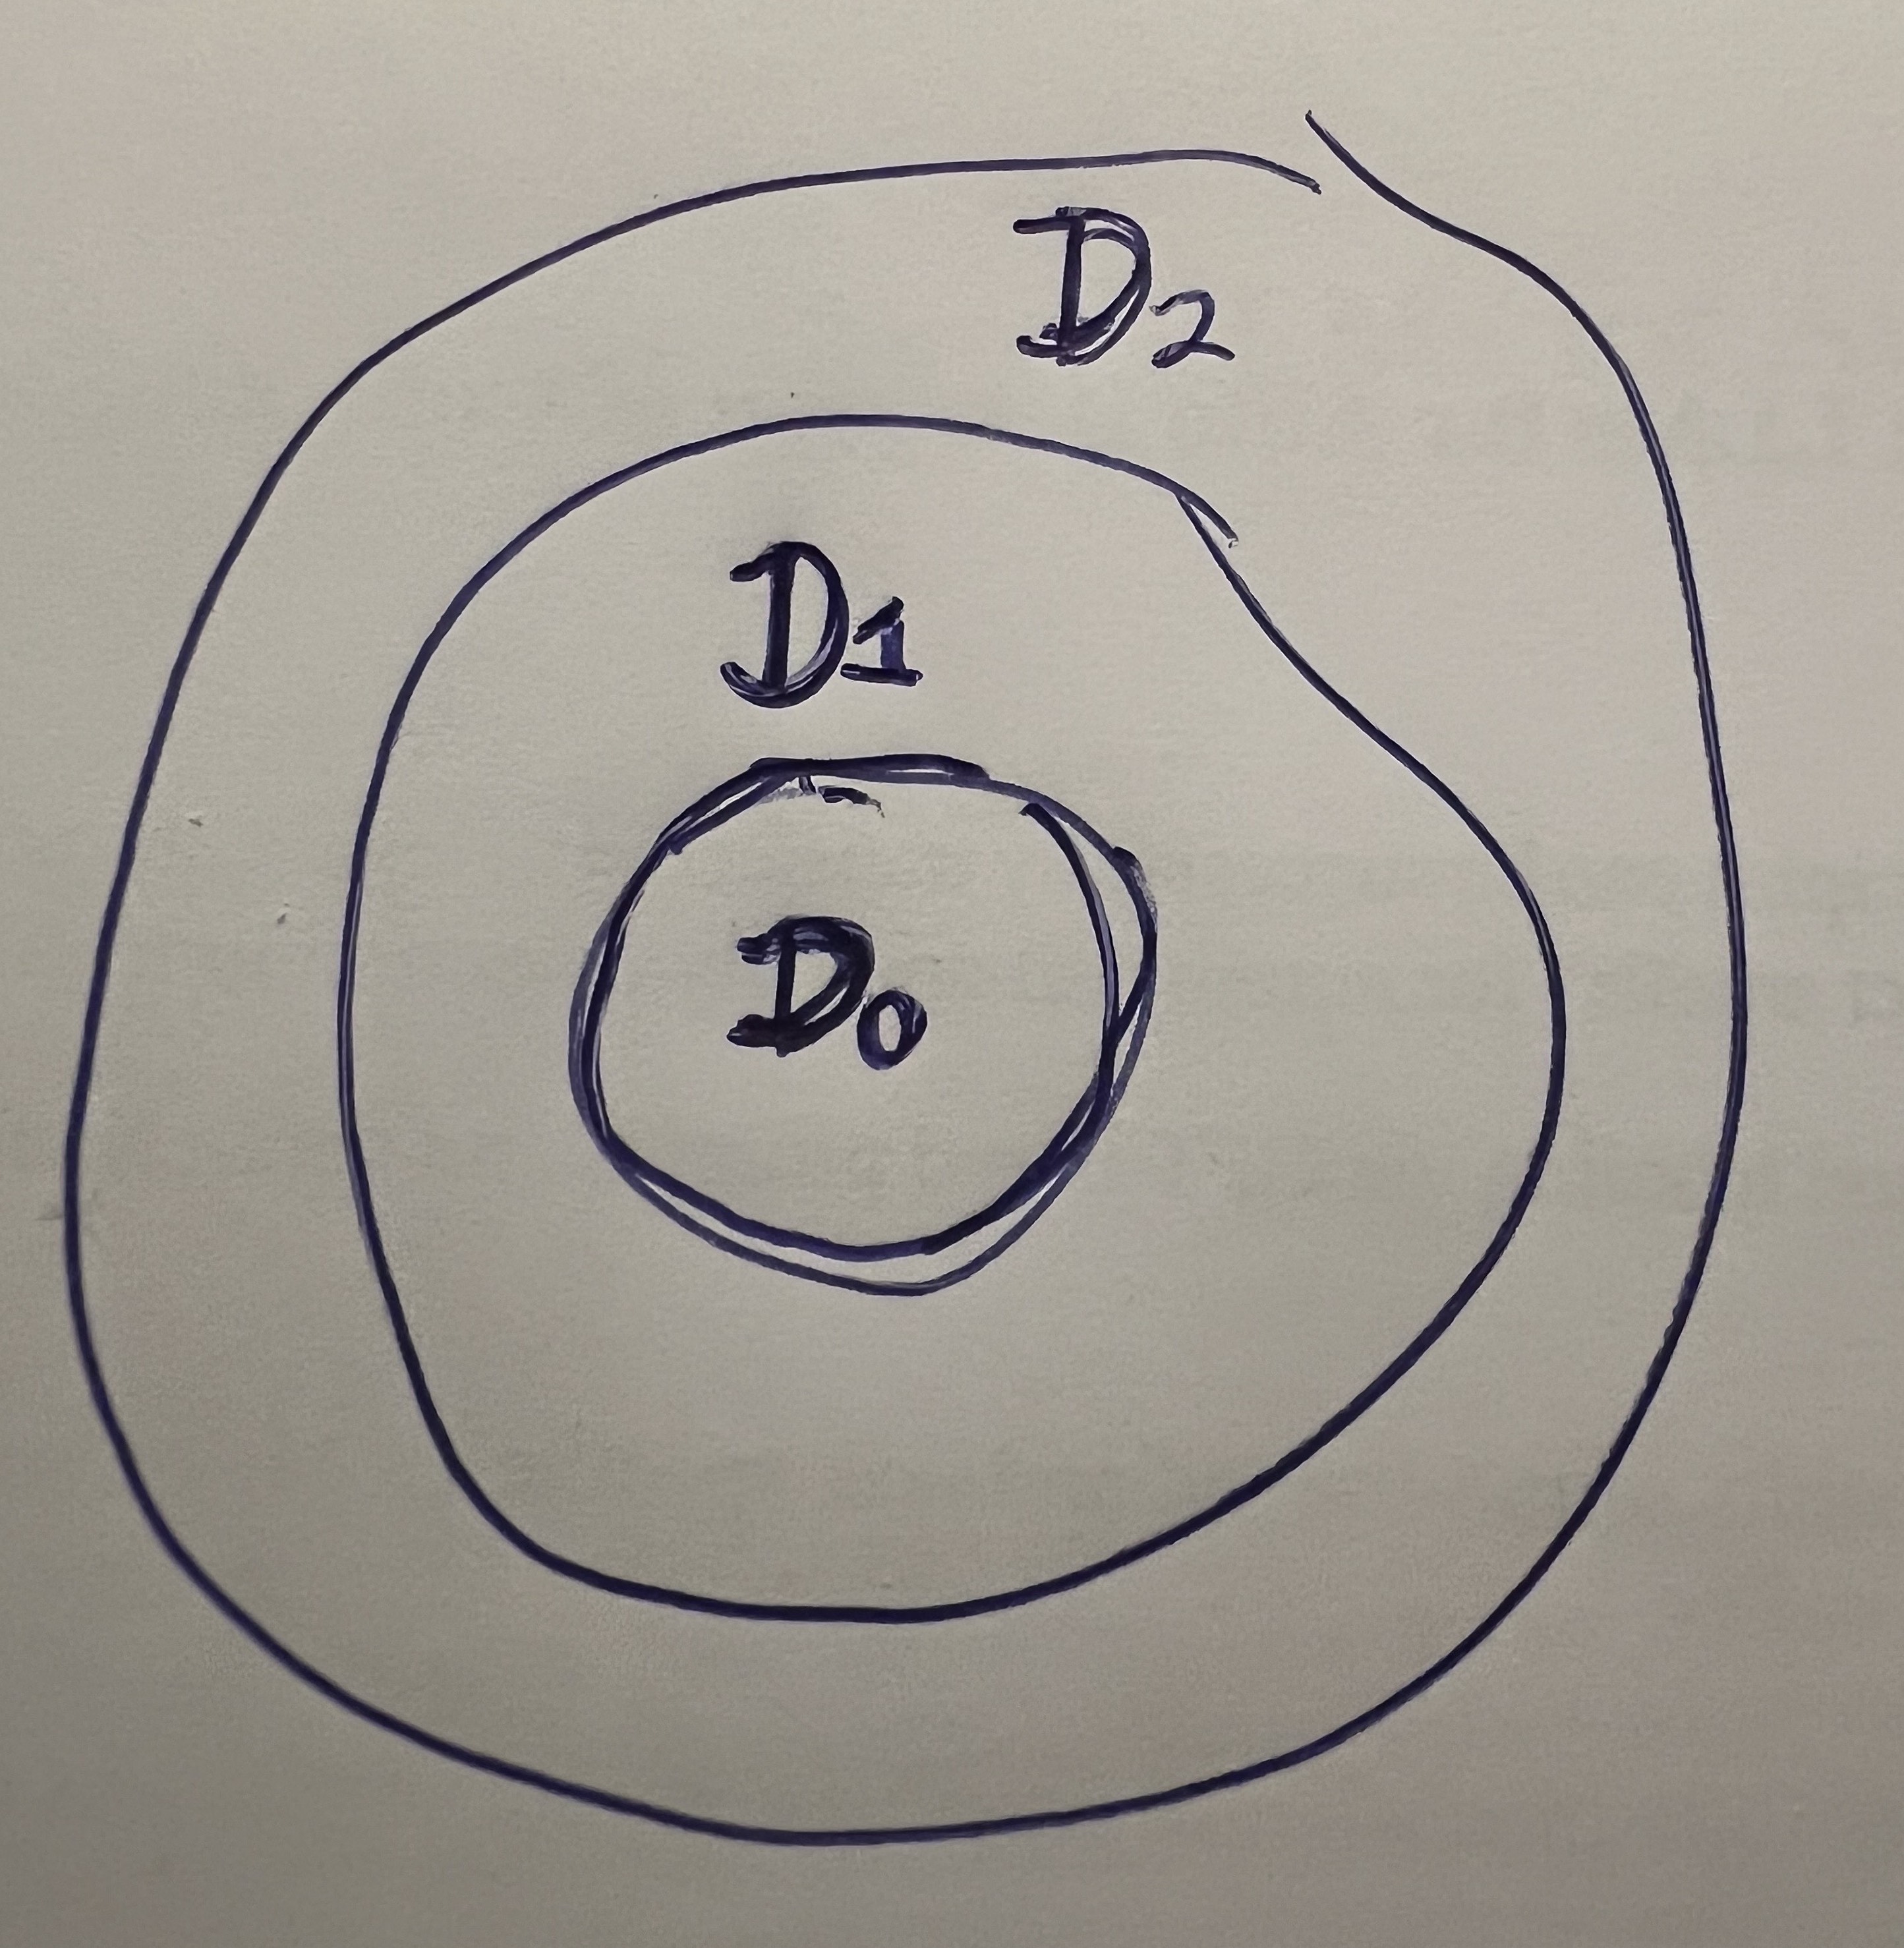 D2
D1
D0